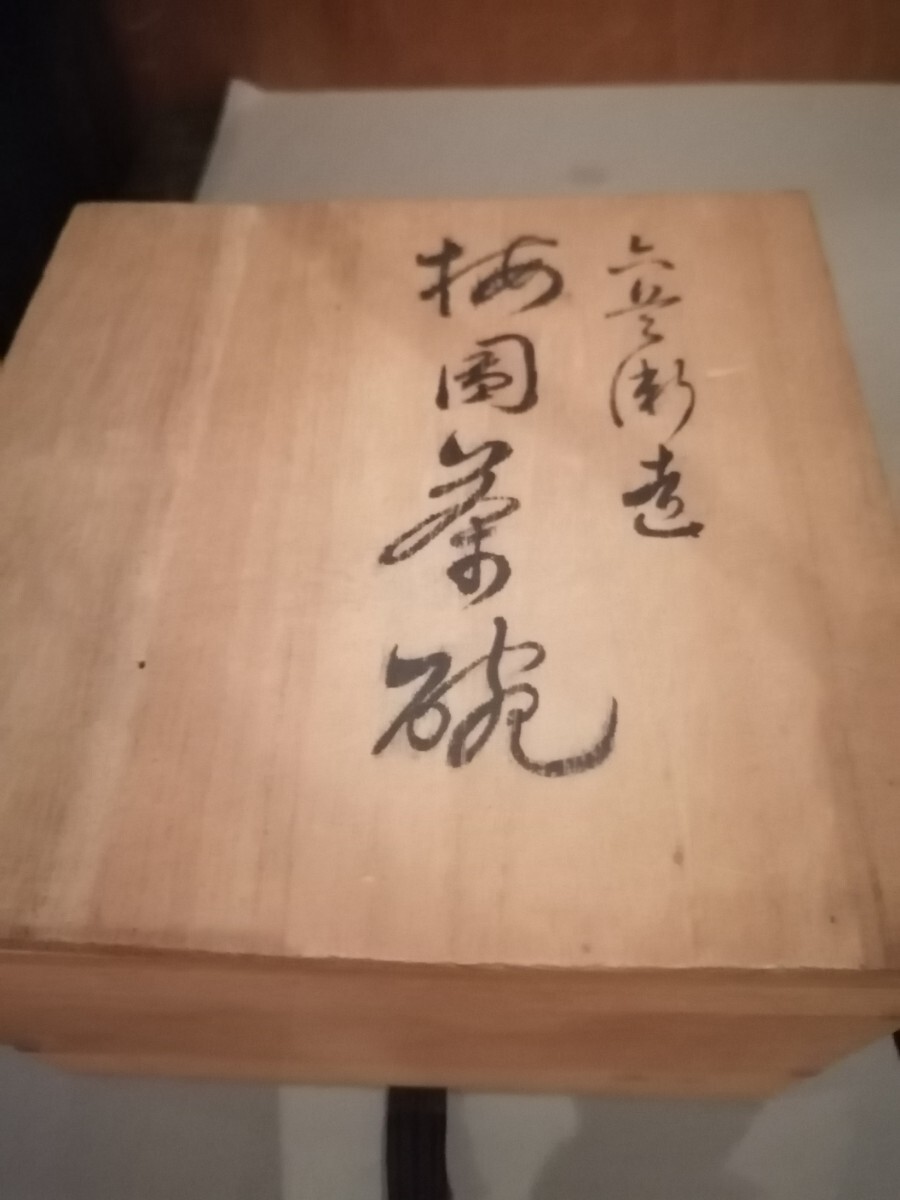 六兵衛造
梅圖茶碗